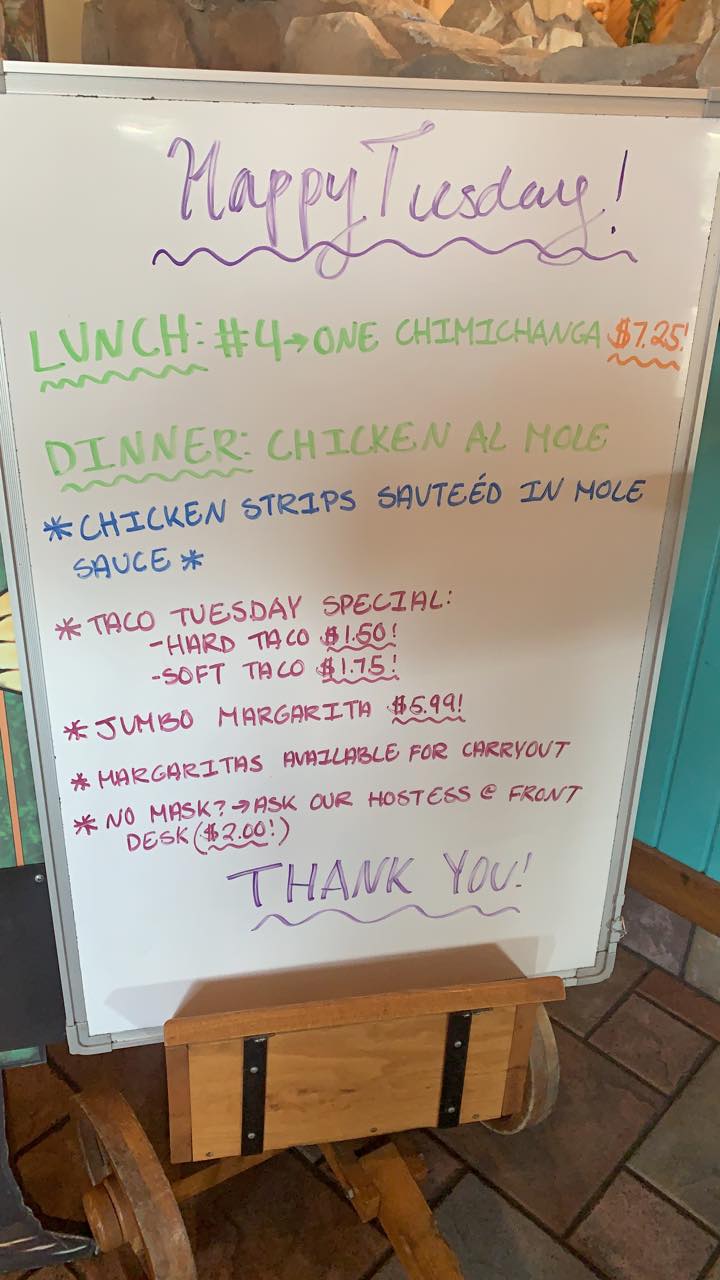 Happy Tuesday!
LUNCH: #4→ONE CHIMICHANGA $7.25!
DINNER: CHICKEN AL MOLE
*CHICKEN STRIPS SAUTEÉD IN MOLE
SAUCE*
*TACO TUESDAY SPECIAL:
-HARD TACO $1.50!
-SOFT TACO $1.75!
*JUMBO MARGARITA $5.99!
*MARGARITAS AVAILABLE FOR CARRYOUT
*NO MASK?→ASK OUR HOSTESS @ FRONT
DESK($2.00!)
THANK YOU!